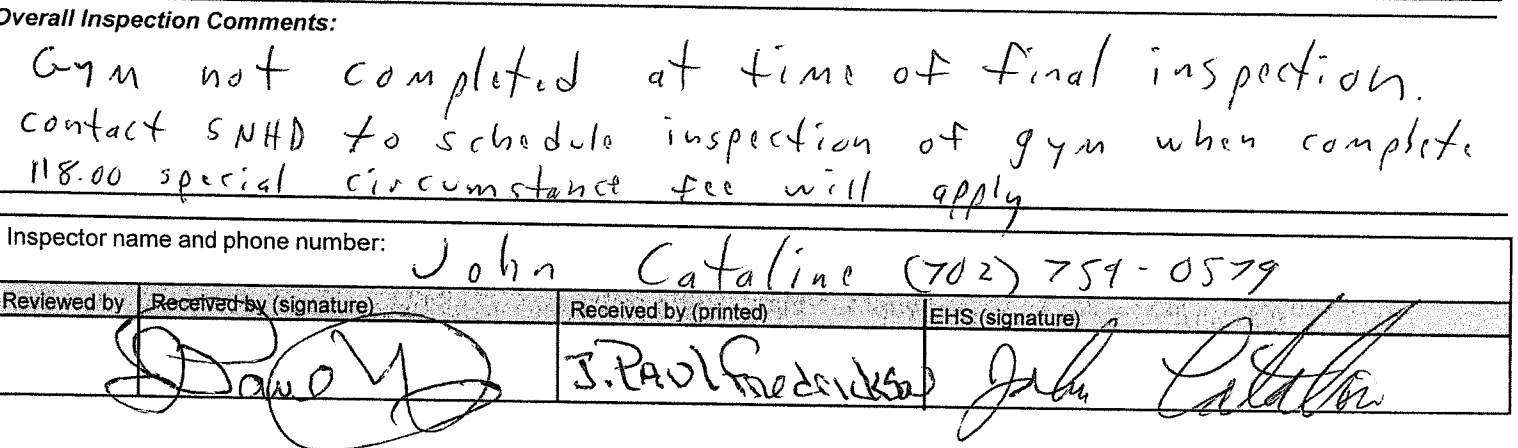 Overall Inspection Comments:
Gym not completed at time of final inspection.
contact SNHD to schedule inspection of gym when complete
118.00 special circumstance fee will apply
Inspector name and phone number: John Cataline (702) 759-0579
Reviewed by Received by (signature) Received by (printed) EHS (signature)
J. PAUl Fredrickson John